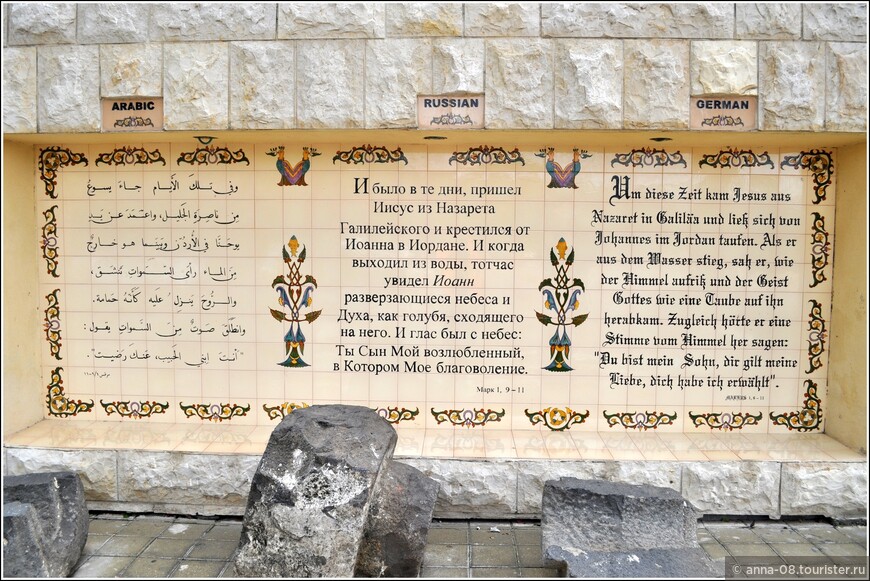 ARABIC
وفي تلك الأيام جاء يسوع
من ناصرة الجليل، واعتمد عن يد
يوحنا في الأردن وبينما هو خارج
من الماء رأى السموات تنشق،
والروح ينزل عليه كأنه حمامة.
وانطلق صوت من السموات يقول:
"أنت ابني الحبيب، عنك رضيت".
RUSSIAN
И было в те дни, пришел
Иисус из Назарета
Галилейского и крестился от
Иоанна в Иордане. И когда
выходил из воды, тотчас
увидел Иоанн
разверзающиеся небеса и
Духа, как голубя, сходящего
на него. И глас был с небес:
Ты Сын Мой возлюбленный,
в Котором Мое благоволение.
Марк 1, 9 – 11
GERMAN
Um diese Zeit kam Jesus aus
Nazaret in Galiläa und ließ sich von
Johannes im Jordan taufen. Als er
aus dem Wasser stieg, sah er, wie
der Himmel aufriß und der Geist
Gottes wie eine Taube auf ihn
herabkam. Zugleich hörte er eine
Stimme vom Himmel her sagen:
"Du bist mein Sohn, dir gilt meine
Liebe, dich habe ich erwählt".
© anna-08.tourister.ru